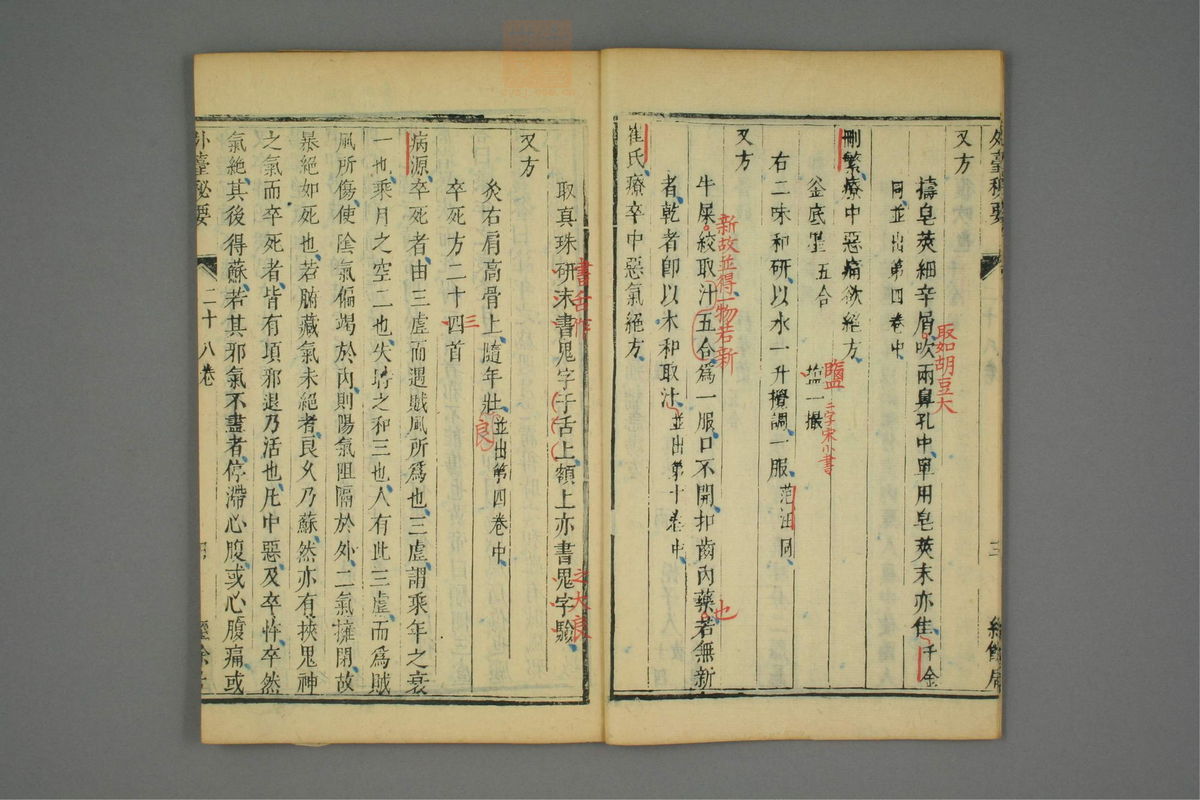 外臺秘要
三
經餘居
又方
擣皂莢細辛屑吹兩鼻孔中單用皂莢末亦佳千金
取如胡豆大
同並出第四卷中
刪繁療中惡痛欲絕方
釜底墨五合 塩一撮
鹽二字宋小書
右二味和研以水一升攪調一服范汪同
又方
牛屎絞取汁五合為一服口不開扣齒內藥若無新
新故並得一物若新
也
者乾者卽以水和取汁並出第十卷中
崔氏療卒中惡氣絕方
取真珠研末書鬼字于舌上額上亦書鬼字驗
書舌作
之大良
又方
灸右肩高骨上隨年壯並出第四卷中
良
卒死方二十四首
三
病源卒死者由三虛而遇賊風所為也三虛謂乘年之衰
一也乘月之空二也失時之和三也人有此三虛而為賊
風所傷使陰氣偏竭於內則陽氣阻隔於外二氣擁閉故
暴絕如死也若腑藏氣未絕者良久乃蘇然亦有挾鬼神
之氣而卒死者皆有頃邪退乃活也凡中惡及卒忤卒然
氣絕其後得蘇若其邪氣不盡者停滯心腹或心腹痛或
外臺秘要
二十八卷
四
經餘居